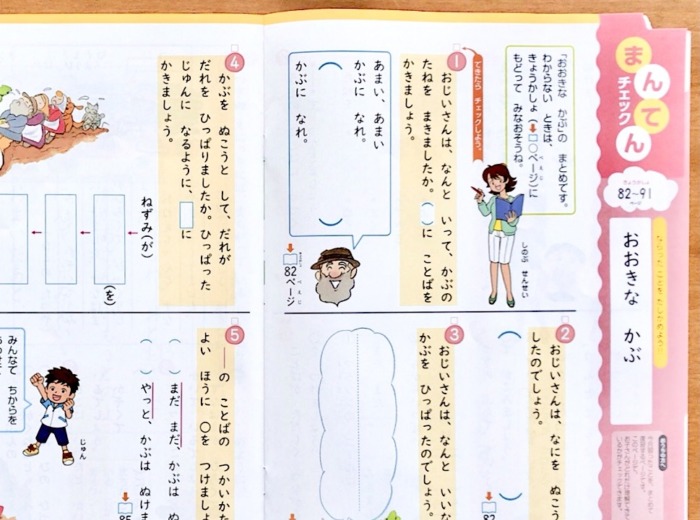 まんてん
チェック
きょうかしょ
82〜91
ページ
おおきな かぶ
「おおきな かぶ」の まとめです。
わからない ときは、
きょうかしょ(□○ページ)に
もどって みなおそうね。
しのぶ せんせい
できたら チェックしよう。
1
おじいさんは、なんと いって、かぶの
たねを まきましたか。( )に ことばを
かきましょう。
あまい、あまい
かぶに なれ。
( )
かぶに なれ。
82ページ
2
おじいさんは、なにを ぬこう
したのでしょう。
( )
82
3
おじいさんは、なんと いいな
かぶを ひっぱったのでしょう。
4
かぶを ぬこうと して、だれが
だれを ひっぱりましたか。ひっぱった
じゅんに なるように、□に
かきましょう。
ねずみ(が)
(を)
5
の ことばの つかいかた
よい ほうに ○を つけましょ
( )まだ まだ、かぶは ぬ
( )やっと、かぶは ぬけま
85
じゅん
みんなで ちからを